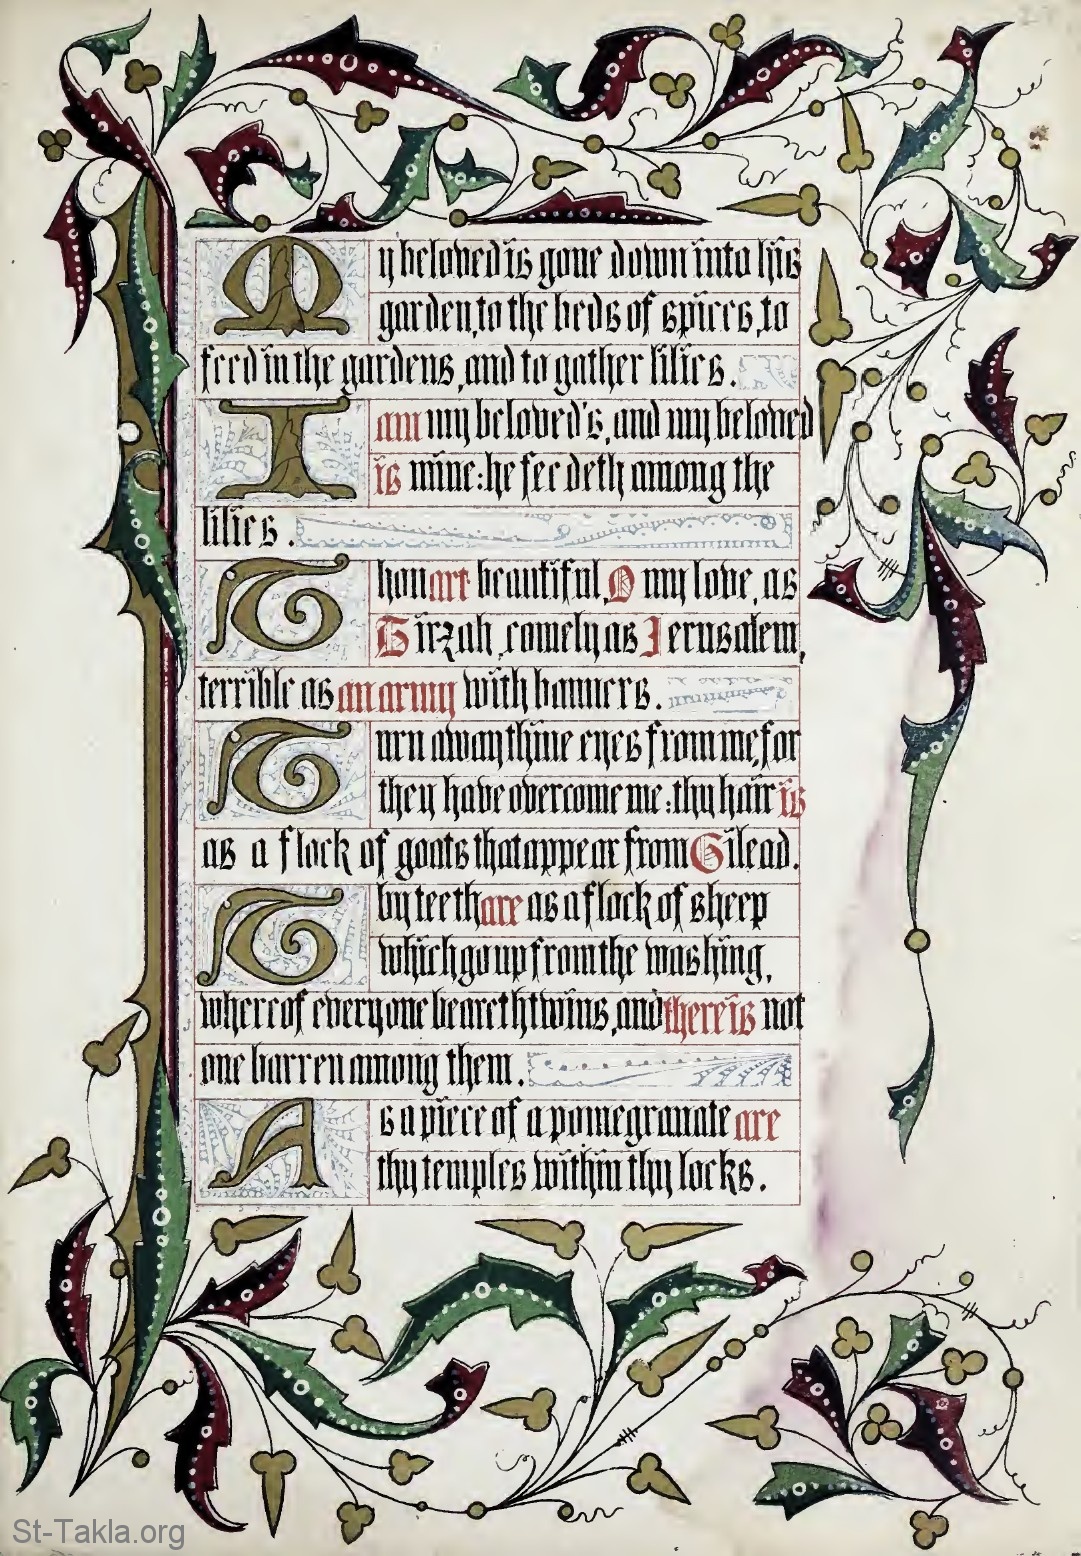 My beloved is gone down into his
garden, to the beds of spices, to
feed in the gardens, and to gather lilies.
I am my beloved's, and my beloved
is mine: he feedeth among the
lilies.
Thou art beautiful, O my love, as
Tirzah, comely as Jerusalem,
terrible as an army with banners.
Turn away thine eyes from me, for
they have overcome me: thy hair is
as a flock of goats that appear from Gilead.
Thy teeth are as a flock of sheep
which go up from the washing,
whereof every one beareth twins, and there is not
one barren among them.
As a piece of a pomegranate are
thy temples within thy locks.
St-Takla.org